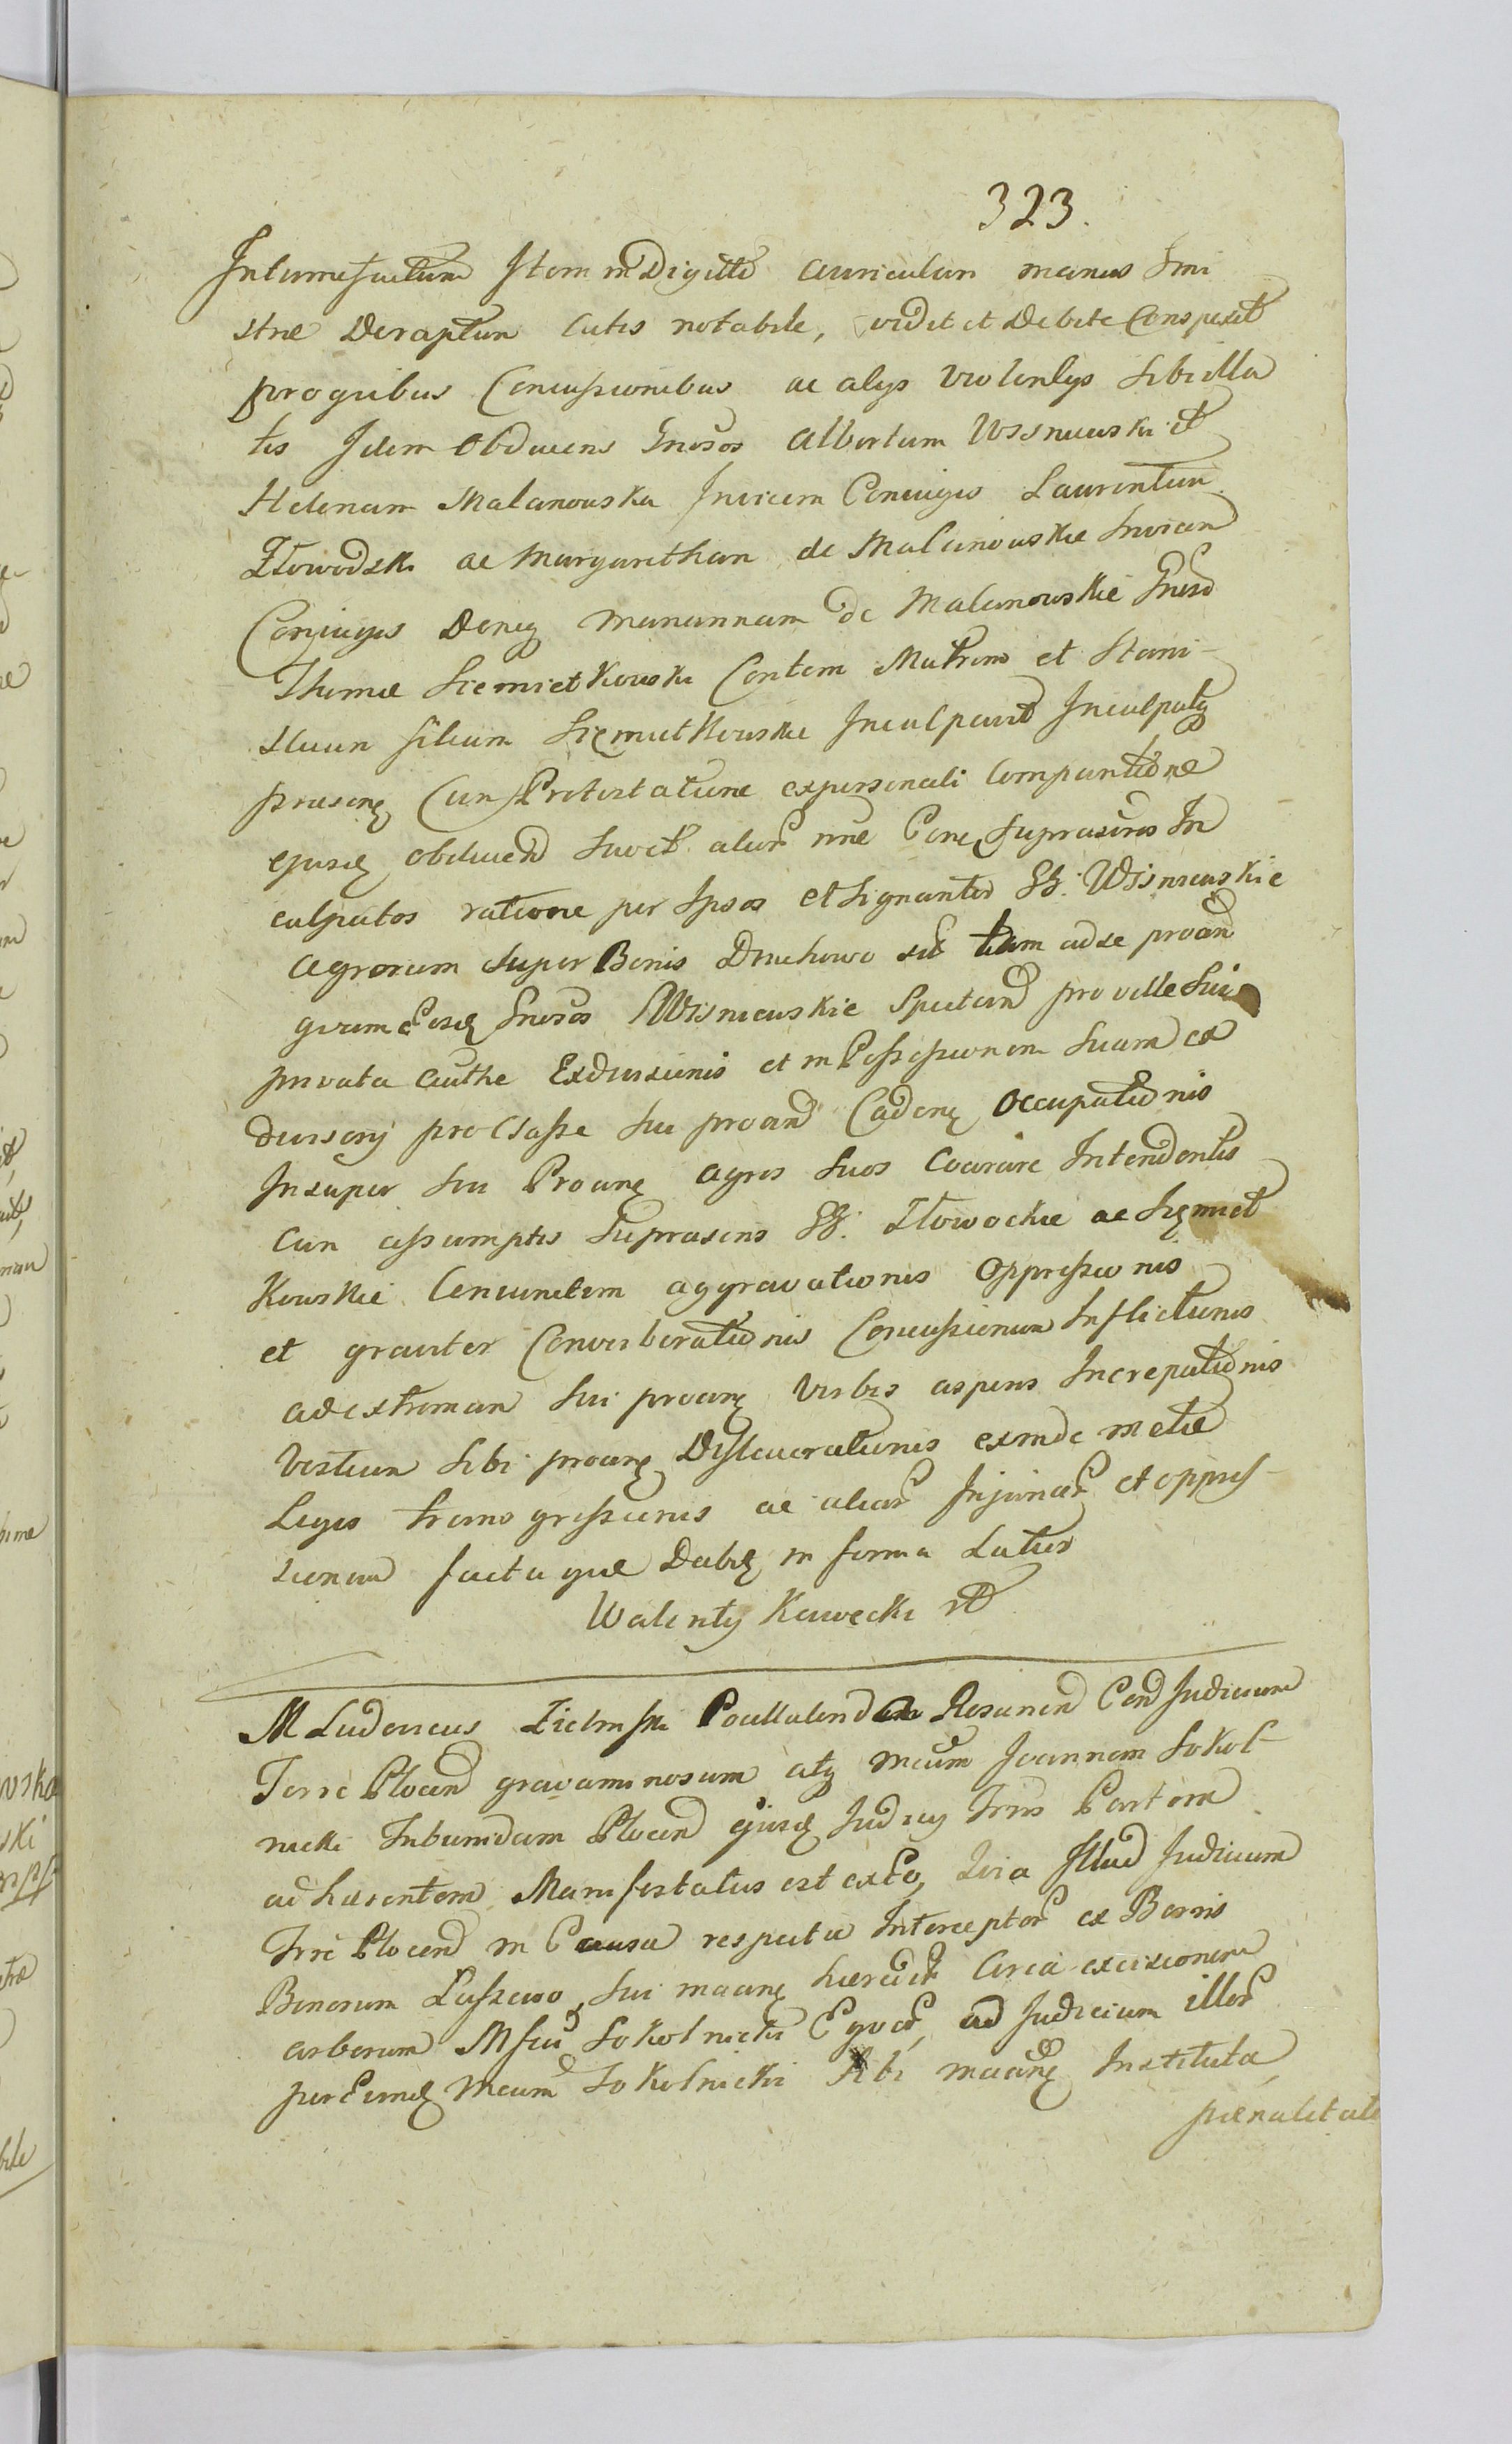 323.
Intumefactum Item in Digitto auricularu manus Sini
strae Deraptum Cutis notabile, vidit et Debite Conspexit
pro quibus Concussionibus ac alijs Violentijs Sibi illa
tis Idem Obducens Gnosos Albertum Wisniewski et
Helenam Malanowska Invicem Coniuges Laurentium
Itowodzki ac Margaretham de Malanowskie Invicem
Conjuges Deniq Mariannam de Malanowskie Gnosi
Thomae Siemietkowski Contem Matrem et Stani-
slaum filium Siemietkowskie Inculpavit Inculpatq
praesenq Cum Protestatione ex personali Comparitione
ejusd obducen Suoet alior nne Cone Suprascros In
culpatos ratione per Ipsos et Signanter GG. Wisniewskie
agrorum super Bonis Druchowo sit tum ad se proan
girum Eosd Gnosos Wisniewskie Spectan pro velle Sui
privata Authe Exdivisionis et in Possessionem Suam ex
divisorij pro Classe Sui proan Caden Occupationis
Insuper Sui Proanq agros Suos Coarare Intendentis
Cum assumptis Suprascris GG. Itowockie ac Siemiet
kowskie Conjunctim aggravationis Oppressionis
et graviter Converberationis Concussionum Inflictionis
ad extremam Sui proanq Verbis asperis Increpationis
Vestium Sibi proanq Dislacerationis exinde metae
Legis transgressionis ac aliar Injuriar et oppres-
sionum factaque Dabit in forma Latior
Walenty Kawecki

M Ludovicus Zielinski Postullando Resumen Cond Judicium
Terre Plocen gravaminosum atq Mcum Joannem Sokol-
nicki Tribunidam Plocen ejusd Judicij Trris Partem
adhaerentem Manifestatus est ex Eo, Quia Illud Judicium
Trre Plocen in Causa respectu Interceptor ex Borris
Bonorum Lasszewo, Sui maanq haeredit Circa excisionem
arborum Mfici Sokolnicki Equor, ad Judicium illor
per Eund Mcum Sokolnicki Sibi maanq Instituta,
paenalitate